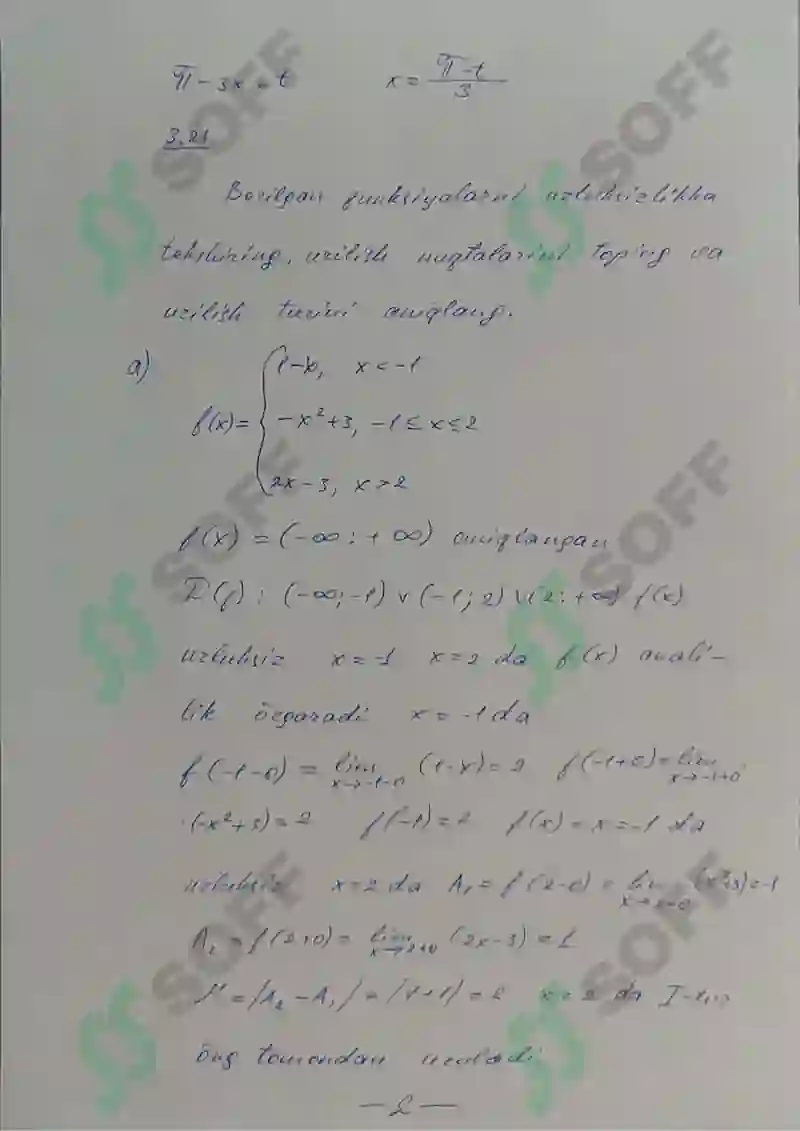 π - 3x = t x = π-t/3
3.21
Berilgan funksiyalarni uzluksizlikka
tekshiring, uzilish nuqtalarini toping va
uzilish turini aniqlang.
a) f(x) = { 1-x, x < -1
-x²+3, -1 ≤ x ≤ 2
2x-3, x > 2
f(x) = (-∞; +∞) aniqlangan
D(f): (-∞; -1) ∨ (-1; 2) ∨ (2; +∞) f(x)
uzluksiz x=-1 x=2 da f(x) anali-
tik özgaradi x = -1 da
f(-1-0) = lim x→-1-0 (1-x) = 2 f(-1+0) = lim x→-1+0
(-x²+3) = 2 f(-1) = 2 f(x) = x = -1 da
uzluksiz x=2 da A₁ = f(2-0) = lim x→2-0 (x²+3) = -1
A₂ = f(2+0) = lim x→2+0 (2x-3) = 1
μ = |A₂ - A₁| = |1+1| = 2 x = 2 da I-tur
öng tomondan uziladi.
— 2 —
SOFF
SOFF
SOFF
SOFF
SOFF
SOFF